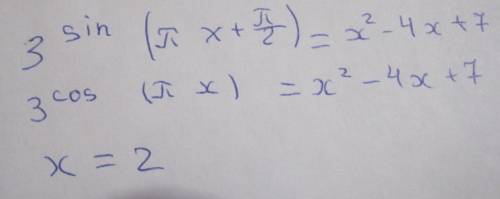 3^sin (π x + π/2) = x² - 4x + 7
3^cos (π x) = x² - 4x + 7
x = 2